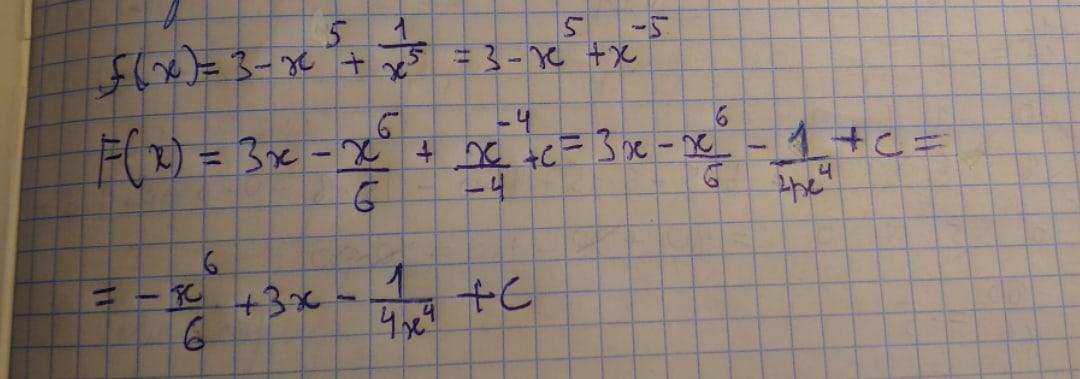 f(x) = 3 - x⁵ + 1/x⁵ = 3 - x⁵ + x⁻⁵
F(x) = 3x - x⁶/6 + x⁻⁴/-4 + c = 3x - x⁶/6 - 1/4x⁴ + c =
= - x⁶/6 + 3x - 1/4x⁴ + C